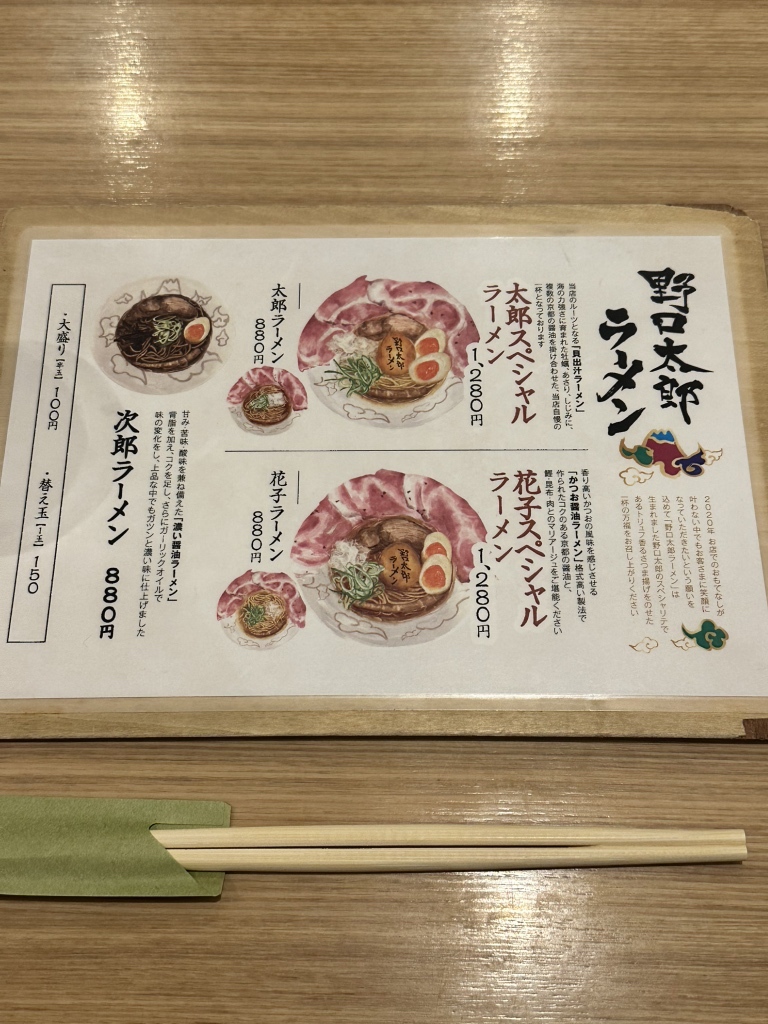 野口太郎
ラーメン
2020年 お店でのおもてなしが
叶わない中でもお客さまに笑顔に
なっていただきたいという願いを
込めて「野口太郎ラーメン」は
生まれました野口太郎のスペシャリテで
あるトリュフ香るさつま揚げをのせた
一杯の万福をお召し上がりください
当店のルーツとなる「貝出汁ラーメン」
海の力強さに育まれた牡蠣、あさり、しじみに、
複数の京都の醤油を掛け合わせた、当店自慢の
一杯となっております
太郎スペシャル
ラーメン
1,280円
野口太郎
ラーメン
太郎ラーメン
880円
香り高いかつおの風味を感じさせる
「かつお醤油ラーメン」格式高い製法で
作られたコクのある京都の醤油と、
鰹・昆布・肉とのマリアージュをご堪能ください
花子スペシャル
ラーメン
1,280円
野口太郎
ラーメン
花子ラーメン
880円
甘み・苦味・酸味を兼ね備えた「濃い醤油ラーメン」
背脂を加え、コクを足し、さらにガーリックオイルで
味の変化をし、上品な中でもガツンと濃い味に仕上げました
次郎ラーメン 880円
・大盛り【半玉】 100円
・替え玉【1玉】 150